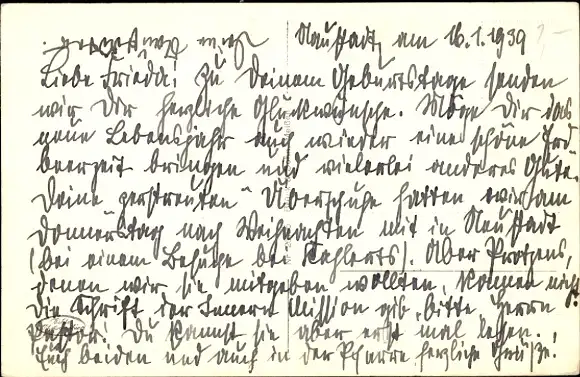 Neustadt, am 16.1.1939
Liebe Frieda! Zu Deinem Geburtstage senden
wir Dir herzliche Glückwünsche. Möge Dir das
neue Lebensjahr auch wieder eine schöne Erd
beerzeit bringen und vielerlei anderes Gute.
Deine "zerstreuten" Überschuhe hatten wir am
Donnerstag nach Weihnachten mit in Neustadt
(bei einem Besuche bei Kahlerts). Aber Protzens,
denen wir sie mitgeben wollten, kamen nicht.
Die Schrift der Innern Mission gib, bitte Herrn
Pastor! Du kannst sie aber erst mal lesen.
Euch beiden und auch in der Pfarre herzliche Grüße.